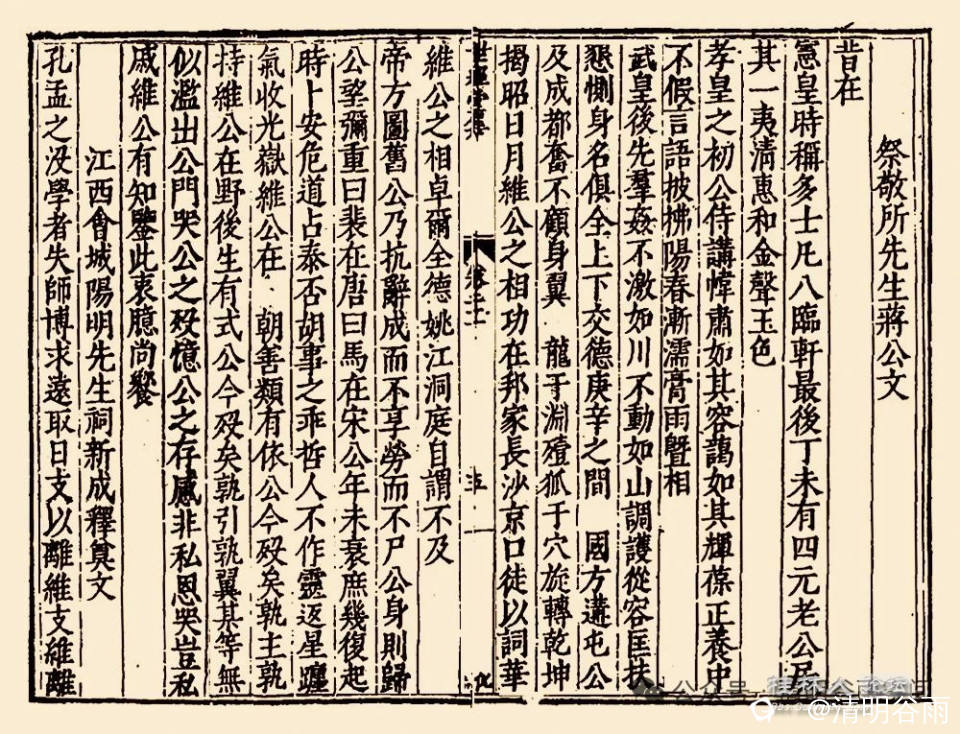 祭敬所先生蔣公文
昔在
憲皇時稱多士凡八臨軒最後丁未有四元老公居
其一夷清惠和金聲玉色
孝皇之初公侍講幃肅如其容藹如其輝葆正養中
不假言語披拂陽春漸濡膏雨曁相
武皇後先羣姦不激如川不動如山調護從容匡扶
懇惻身名俱全上下交德庚辛之間 國方遘屯公
及成都奮不顧身翼 龍于淵殪狐于穴旋轉乾坤
揭昭日月維公之相功在邦家長沙京口徒以詞華
維公之相卓爾全德姚江洞庭自謂不及
帝方圖舊公乃抗辭成而不享勞而不尸公身則歸
公望彌重曰裴在唐曰馬在宋公年未衰庶幾復起
時卜安危道占泰否胡事之乖哲人不作靈返星躔
氣收光嶽維公在 朝善類有依公今歿矣孰主孰
持維公在野後生有式公今歿矣孰引孰翼某等無
似濫出公門哭公之歿憶公之存感非私恩哭豈私
戚維公有知鑒此衷臆尚饗
江西會城陽明先生祠新成釋奠文
孔孟之没學者失師博求遠取日支以離維支維離
@清明谷雨